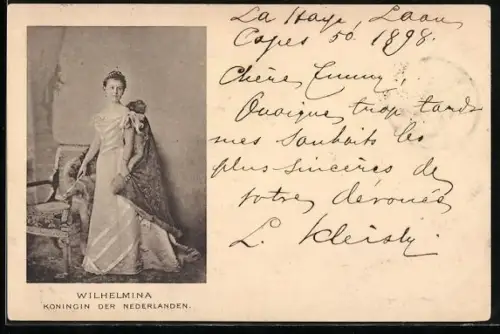 La Haye, Laan
Copes 50. 1898.
Chère Emmy,
Quoique trop tard
mes souhaits les
plus sincères de
votre dévouée
L.
WILHELMINA
KONINGIN DER NEDERLANDEN.